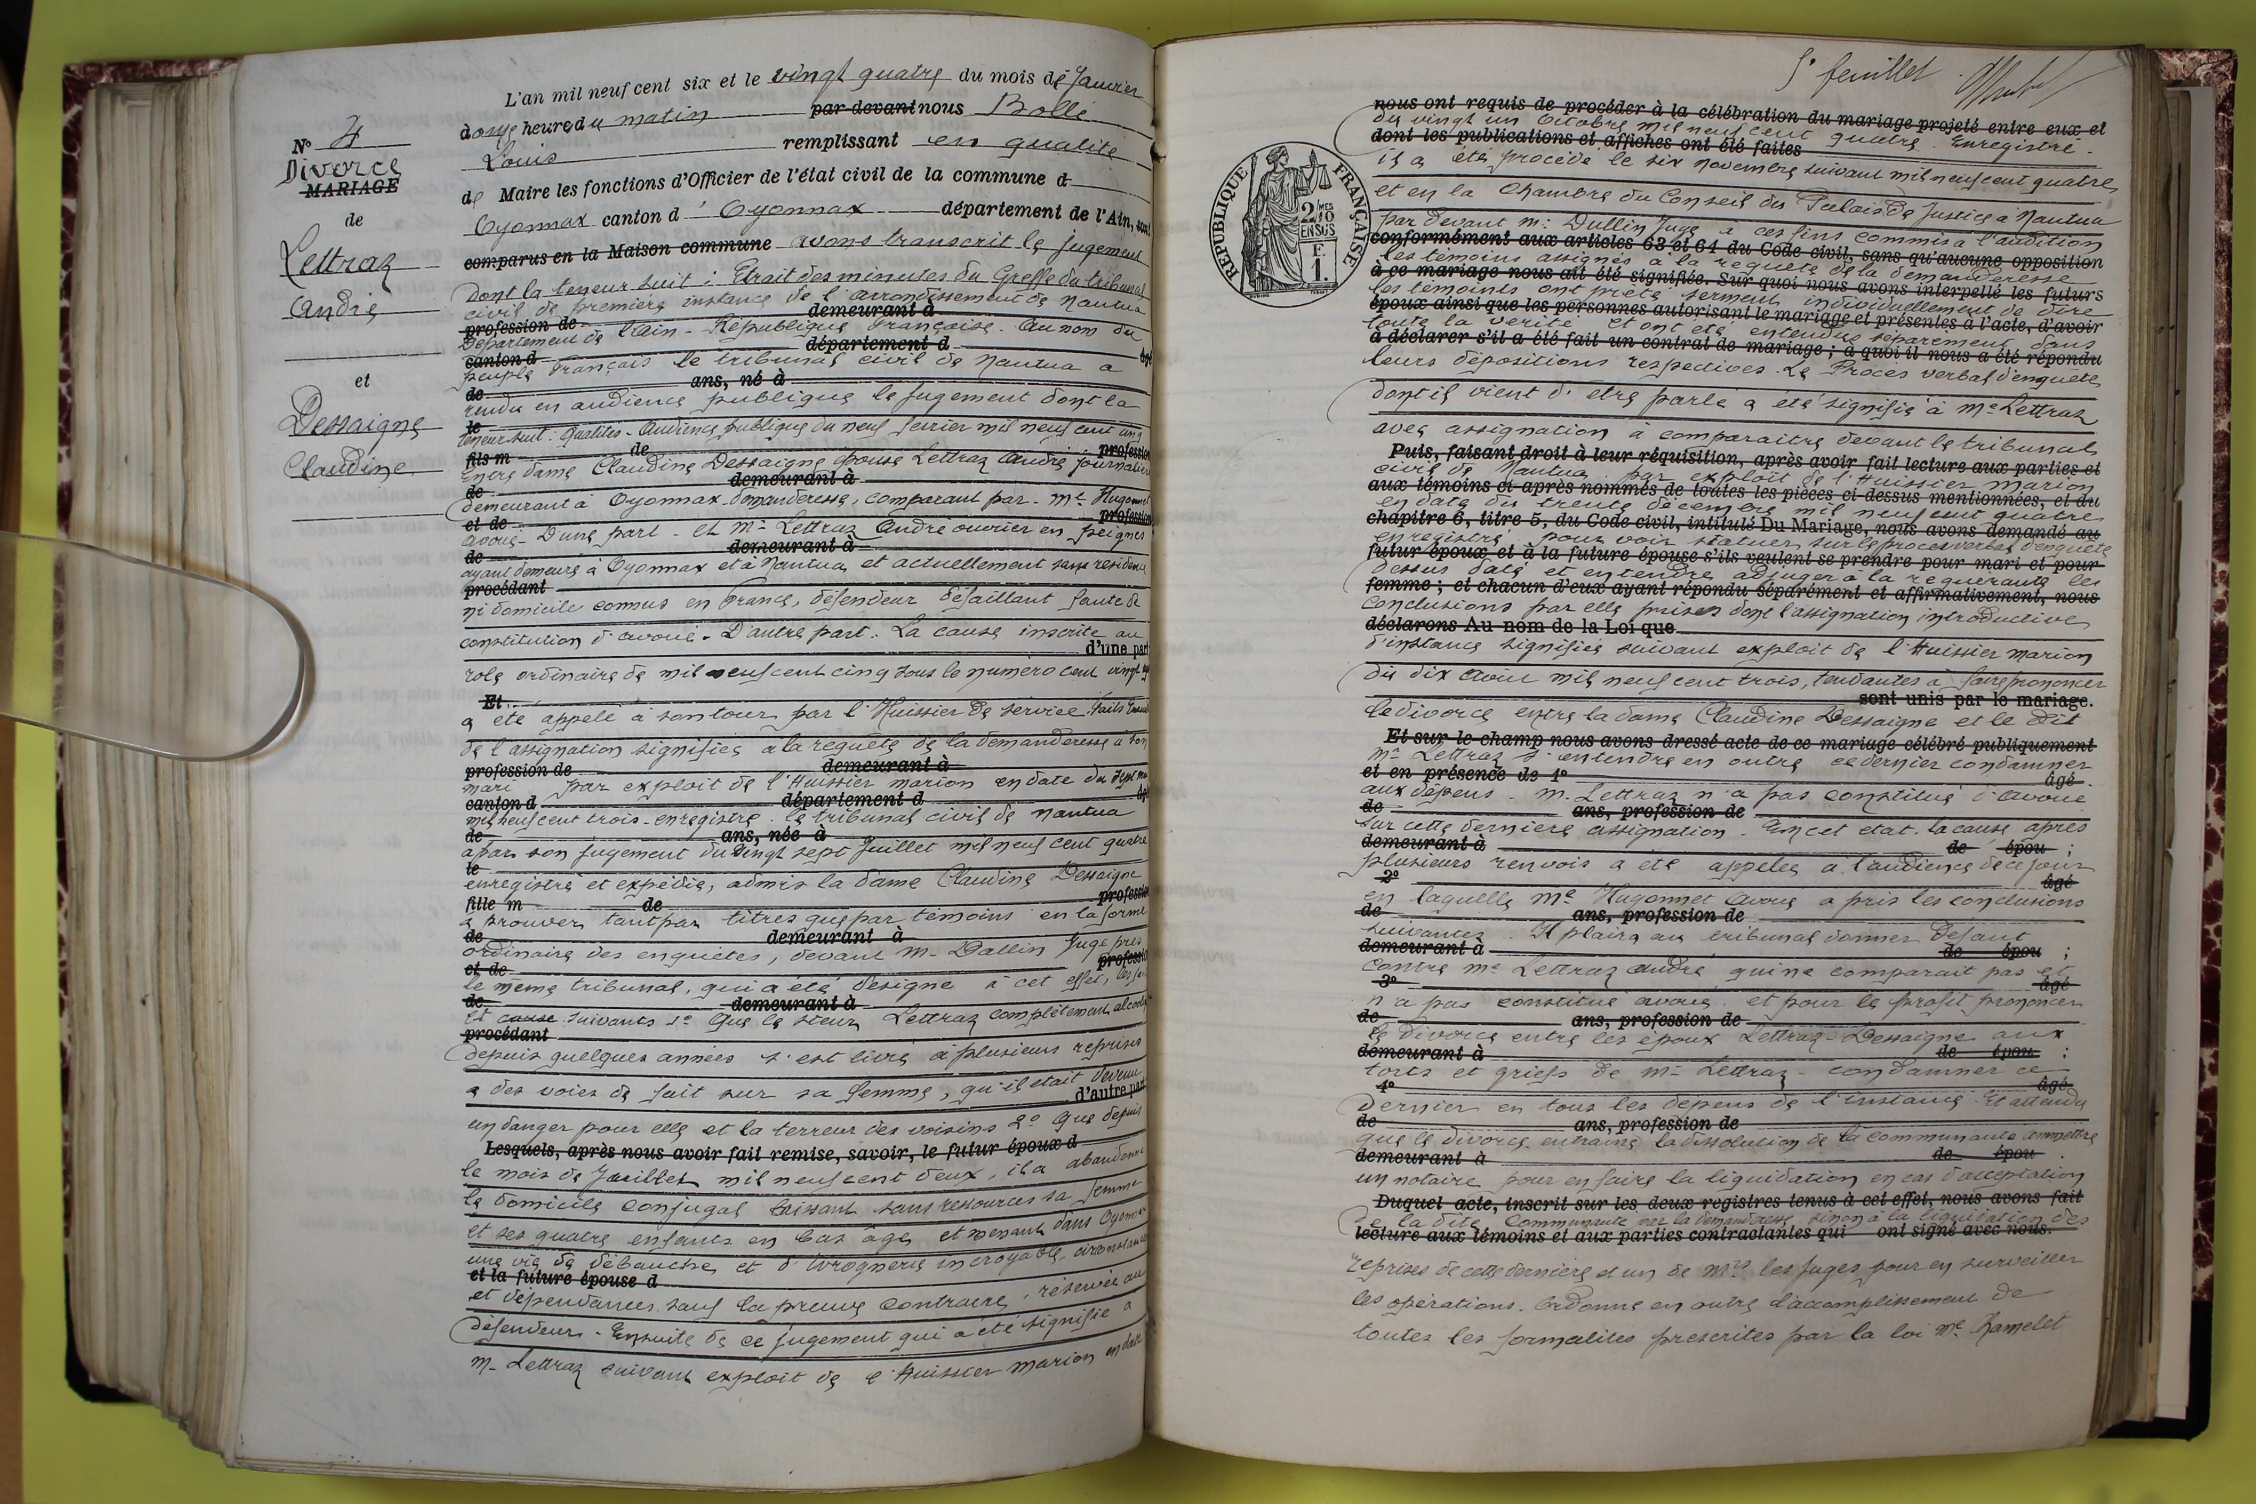 N° 4
Divorce
MARIAGE
de
Lettraz
André
et
Dessaigne
Claudine
L'an mil neuf cent six et le vingt quatre du mois de Janvier
à onze heure du matin par devant nous Bollé
Louis remplissant en qualité
de Maire les fonctions d'Officier de l'état civil de la commune d
Oyonnax canton d'Oyonnax département de l'Ain, sont
comparus en la Maison commune avons transcrit le jugement
dont la teneur suit : Etrait des minutes du Greffe du tribunal
civil de première instance de l'arrondissement de Nantua
profession de demeurant à
Département de l'Ain - République Française. Au nom du
canton d département d âgé
peuple Français le tribunal civil de Nantua a
de ans, né à
rendu en audience publique le jugement dont la
le
teneur suit : Qualités - Audience publique du neuf fevrier mil neuf cent cinq
fils m de profession
Entre dame Claudine Dessaigne épouse Lettraz André journalière
de demeurant à
demeurant à Oyonnax demanderesse, comparant par Me Hugonnet
et de profession
avoué - D'une part - et Mr Lettraz André ouvrier en peignes
de demeurant à
ayant demeuré à Oyonnax et à Nantua et actuellement sans résidence
procédant
ni domicile connus en France, défendeur défaillant faute de
constitution d'avoué - D'autre part. La cause inscrite au
d'une part
role ordinaire de mil neuf cent cinq sous le numéro cent vingt
Et
a été appelé à son tour par l'Huissier de service. Faits
de l'assignation signifiée à la requête de la demanderesse à son
profession de demeurant à
mari par exploit de l'Huissier Marion en date du sept mai
canton d département d âgé
mil neuf cent trois - enregistré. le tribunal civil de Nantua
de ans, née à
a par son jugement du vingt sept Juillet mil neuf cent quatre
le
enregistré et expédié, admis la dame Claudine Dessaigne
fille m de profession
a prouver tant par titres que par témoins en la forme
de demeurant à
ordinaire des enquêtes, devant M. Dallin Juge près
et de profession
le même tribunal, qui a été désigné à cet effet, les faits
de demeurant à
et cause suivants 1° Que le sieur Lettraz complètement alcoolique
procédant
depuis quelques années s'est livré à plusieurs reprises
a des voies de fait sur sa femme, qu'il était devenu
d'autre part
un danger pour elle et la terreur des voisins 2° Que depuis
Lesquels, après nous avoir fait remise, savoir, le futur époux d
le mois de Juillet mil neuf cent deux, il a abandonné
le domicile conjugal laissant sans ressources sa femme
et ses quatre enfants en bas âge et menant dans Oyonnax
une vie de débauche et d'ivrognerie incroyable, circonstances
et la future épouse d
et dépendances sauf la preuve contraire, réservée au
défendeur - Ensuite de ce jugement qui a été signifié à
M. Lettraz suivant exploit de l'Huissier Marion en date
5e feuillet
nous ont requis de procéder à la célébration du mariage projeté entre eux et
du vingt un Octobre mil neuf cent quatre Enregistré.
dont les publications et affiches ont été faites
il a été procédé le six novembre suivant mil neuf cent quatre
et en la Chambre du Conseil du Palais de Justice à Nantua
par devant Mr Dullin Juge a ces fins commis à l'audition
conformément aux articles 63 et 64 du Code civil, sans qu'aucune opposition
les témoins assignés à la requête de la demanderesse
à ce mariage nous ait été signifiée. Sur quoi nous avons interpellé les futurs
les témoints ont prêté serment individuellement de dire
époux ainsi que les personnes autorisant le mariage et présentes à l'acte, d'avoir
toute la vérité et ont été entendus séparement dans
à déclarer s'il a été fait un contrat de mariage ; à quoi il nous a été répondu
leurs dépositions respectives. Le Procès verbal d'enquête
dont il vient d'être parlé a été signifié à Mr Lettraz
avec assignation à comparaître devant le tribunal
Puis, faisant droit à leur réquisition, après avoir fait lecture aux parties et
civil de Nantua par exploit de l'Huissier Marion
aux témoins ci-après nommés de toutes les pièces ci-dessus mentionnées, et du
en date du trente décembre mil neuf cent quatre
chapitre 6, titre 5, du Code civil, intitulé Du Mariage, nous avons demandé au
enregistré pour voir statuer sur le procès verbal d'enquête
futur époux et à la future épouse s'ils veulent se prendre pour mari et pour
dessus daté et entendre adjuger à la requérante les
femme ; et chacun d'eux ayant répondu séparément et affirmativement, nous
conclusions par elle prises dont l'assignation introductive
déclarons Au nom de la Loi que
d'instance signifiée suivant exploit de l'Huissier Marion
du dix Août mil neuf cent trois, tendantes à faire prononcer
sont unis par le mariage.
le divorce entre la dame Claudine Dessaigne et le dit
Et sur le champ nous avons dressé acte de ce mariage célébré publiquement
Mr Lettraz s'entendre en outre ce dernier condamner
et en présence de 1° âgé
aux dépens. M. Lettraz n'a pas constitué d'avoué
de ans, profession de
sur cette dernière assignation. En cet état la cause après
demeurant à de épou ;
plusieurs renvois a été appelée à l'audience de ce jour
2° âgé
en laquelle Me Hugonnet avoué a pris les conclusions
de ans, profession de
suivantes. Il plaira au tribunal donner Défaut
demeurant à de épou ;
contre Mr Lettraz André qui ne comparait pas et
3° âgé
n'a pas constitué avoué. et pour le profit prononcer
de ans, profession de
le divorce entre les époux Lettraz-Dessaigne aux
demeurant à de épou ;
torts et griefs de Mr Lettraz - condamner ce
4° âgé
dernier en tous les dépens de l'instance. Et attendu
de ans, profession de
que le divorce entraine la dissolution de la communauté commettre
demeurant à de épou .
un notaire pour en faire la liquidation en cas d'acceptation
Duquel acte, inscrit sur les deux registres tenus à cet effet, nous avons fait
de la dite Communauté par la demanderesse sinon à la liquidation des
lecture aux témoins et aux parties contractantes qui ont signé avec nous.
reprises de cette dernière et un de Mrs les Juges pour en surveiller
les opérations. Ordonne en outre l'accomplissement de
toutes les formalités prescrites par la loi Me Ramelet
RÉPUBLIQUE FRANÇAISE
2/10MES
EN SUS
F.
1.